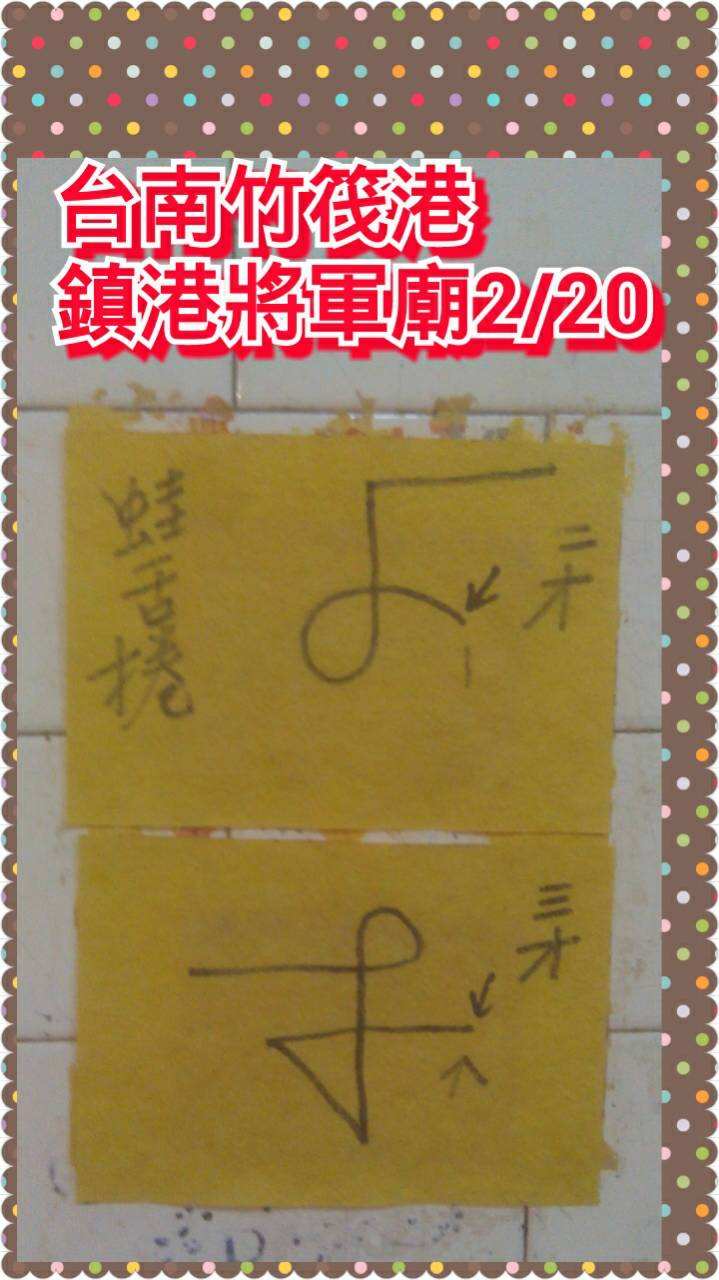 台南竹筏港
鎮港將軍廟2/20
二才
蛙舌捲
三才